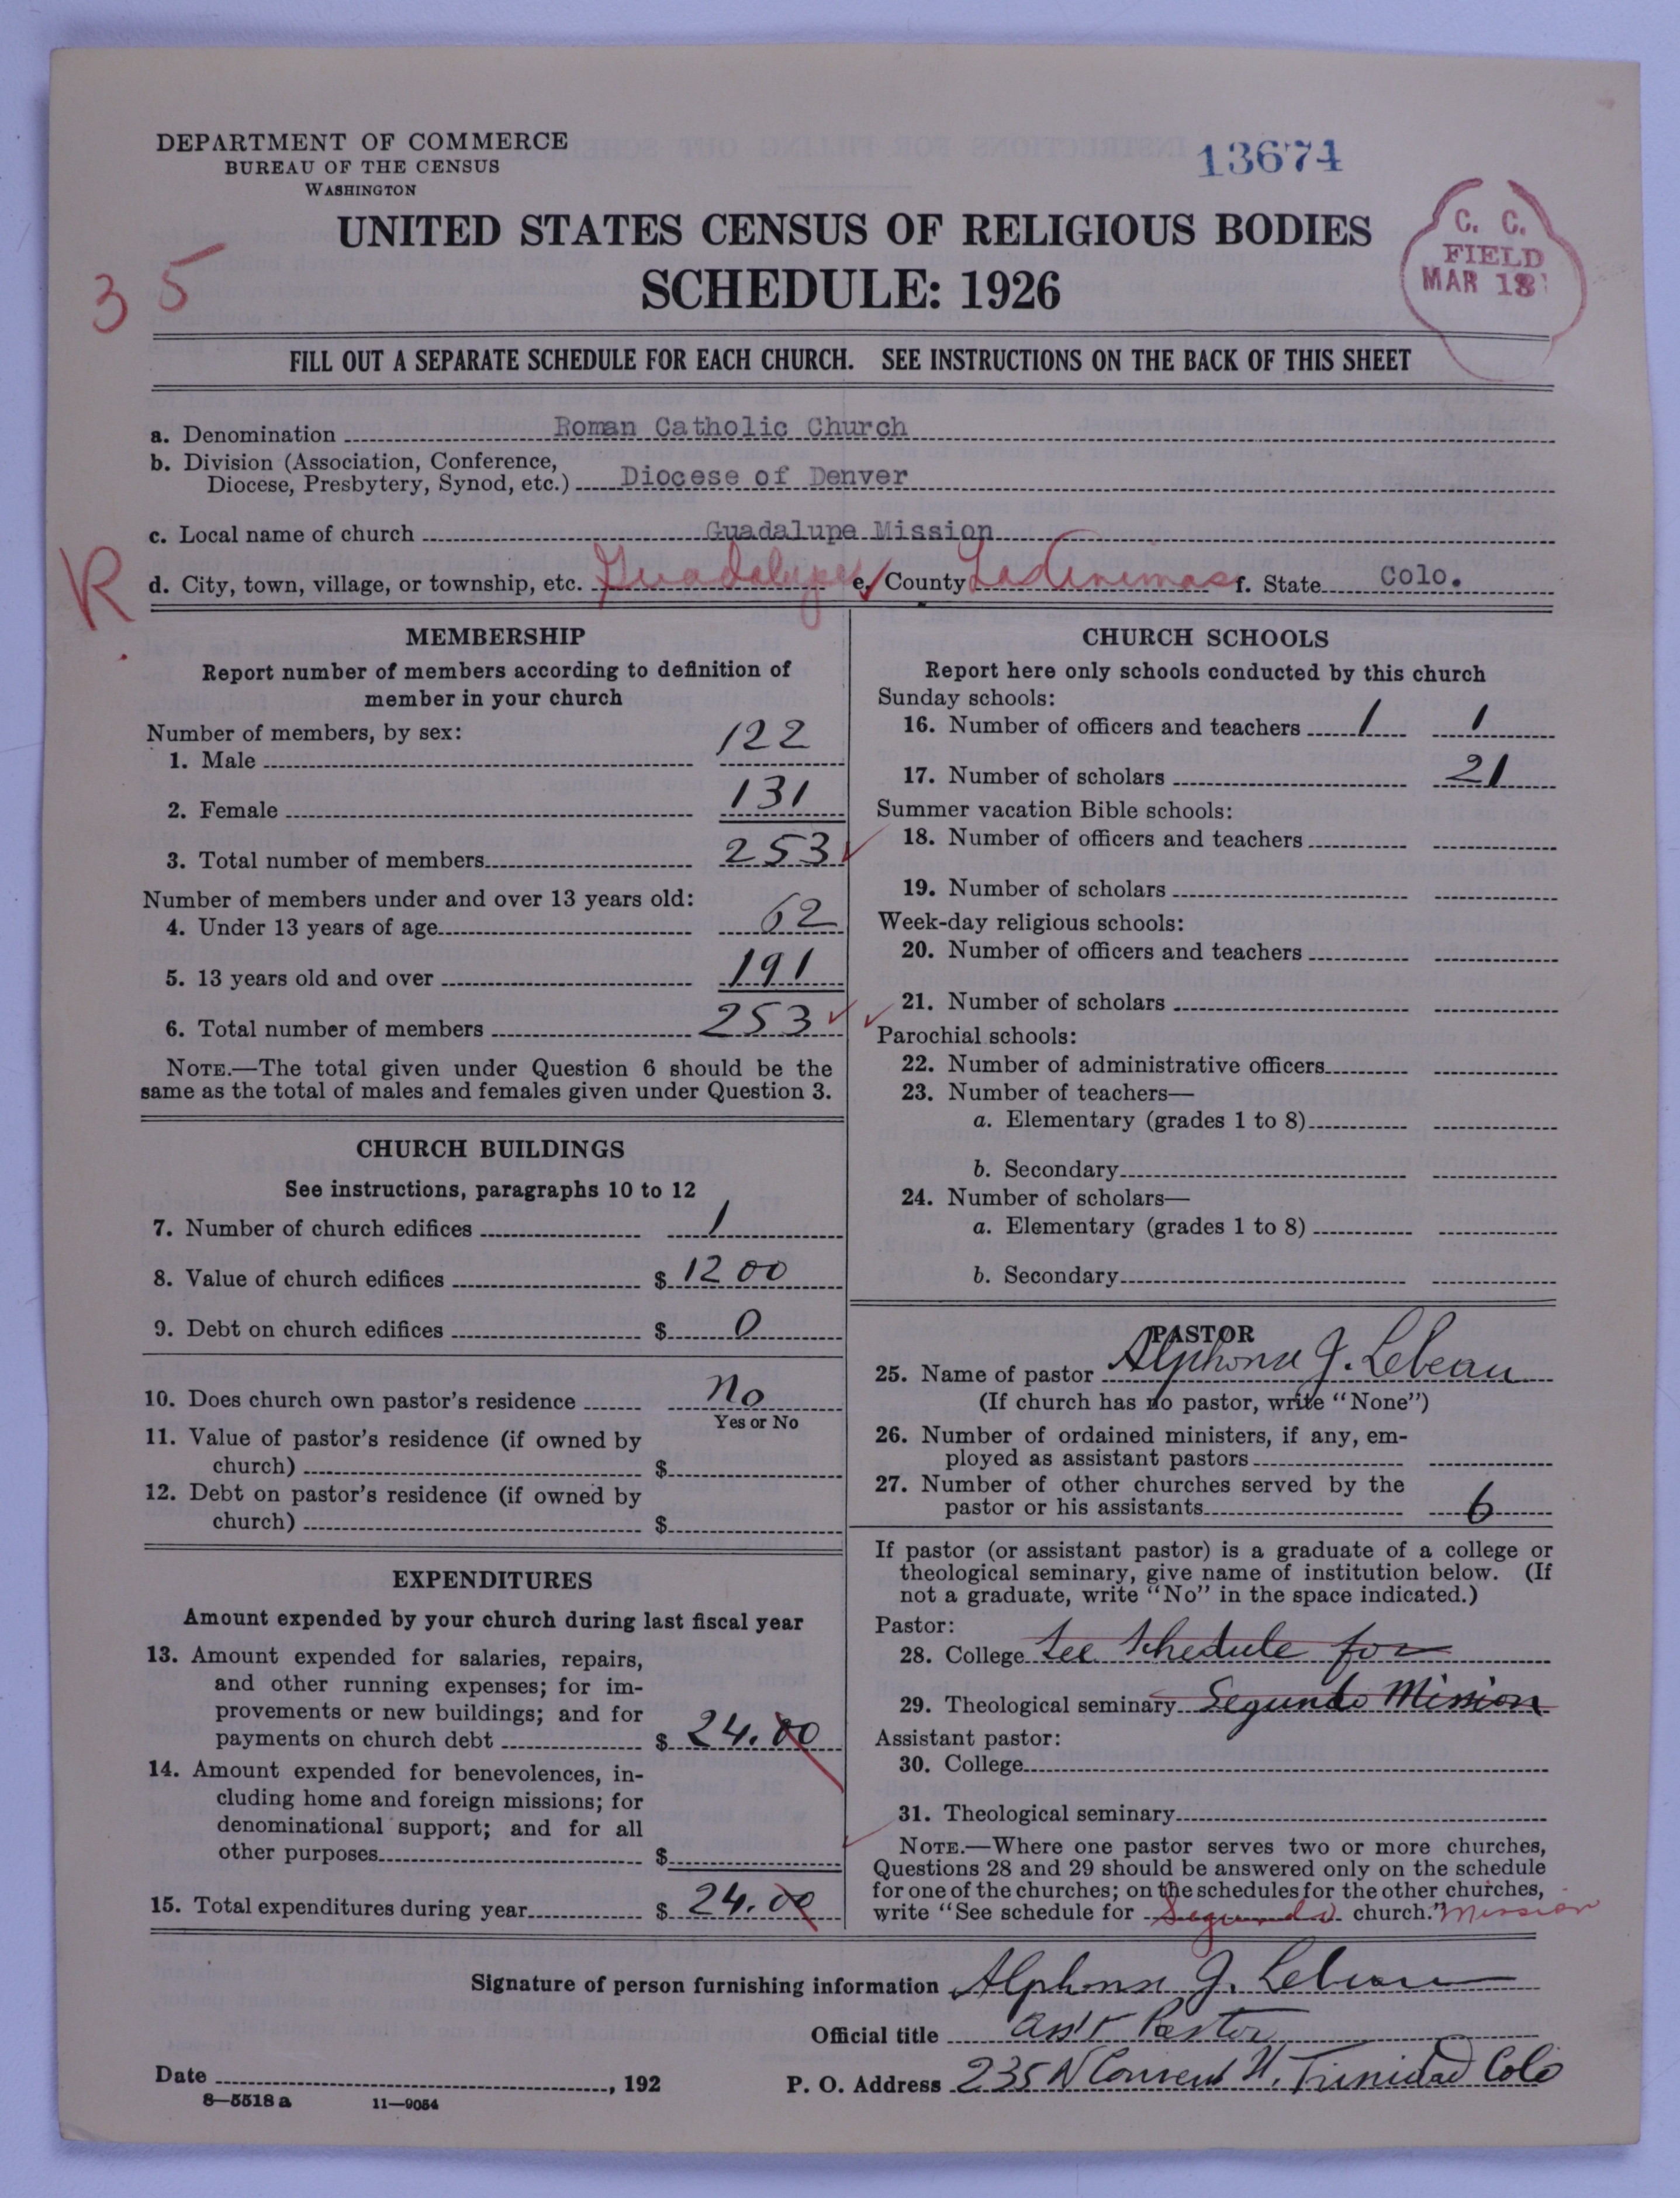 DEPARTMENT OF COMMERCE
BUREAU OF THE CENSUS
WASHINGTON
13674
UNITED STATES CENSUS OF RELIGIOUS BODIES
SCHEDULE: 1926
C. C.
FIELD
MAR 18
35
FILL OUT A SEPARATE SCHEDULE FOR EACH CHURCH. SEE INSTRUCTIONS ON THE BACK OF THIS SHEET
a. Denomination Roman Catholic Church
b. Division (Association, Conference,
Diocese, Presbytery, Synod, etc.) Diocese of Denver
c. Local name of church Guadalupe Mission
R
d. City, town, village, or township, etc. Guadalupe e. County Las Animas f. State Colo.
MEMBERSHIP
Report number of members according to definition of
member in your church
Number of members, by sex:
1. Male 122
2. Female 131
3. Total number of members 253
Number of members under and over 13 years old:
4. Under 13 years of age 62
5. 13 years old and over 191
6. Total number of members 253
NOTE.—The total given under Question 6 should be the
same as the total of males and females given under Question 3.
CHURCH BUILDINGS
See instructions, paragraphs 10 to 12
7. Number of church edifices 1
8. Value of church edifices $ 1200
9. Debt on church edifices $ 0
10. Does church own pastor's residence No
Yes or No
11. Value of pastor's residence (if owned by
church) $
12. Debt on pastor's residence (if owned by
church) $
EXPENDITURES
Amount expended by your church during last fiscal year
13. Amount expended for salaries, repairs,
and other running expenses; for im-
provements or new buildings; and for
payments on church debt $ 24.00
14. Amount expended for benevolences, in-
cluding home and foreign missions; for
denominational support; and for all
other purposes $
15. Total expenditures during year $ 24.00
CHURCH SCHOOLS
Report here only schools conducted by this church
Sunday schools:
16. Number of officers and teachers 1 1
17. Number of scholars 21
Summer vacation Bible schools:
18. Number of officers and teachers
19. Number of scholars
Week-day religious schools:
20. Number of officers and teachers
21. Number of scholars
Parochial schools:
22. Number of administrative officers
23. Number of teachers—
a. Elementary (grades 1 to 8)
b. Secondary
24. Number of scholars—
a. Elementary (grades 1 to 8)
b. Secondary
PASTOR
25. Name of pastor Alphonse J. Lebeau
(If church has no pastor, write "None")
26. Number of ordained ministers, if any, em-
ployed as assistant pastors
27. Number of other churches served by the
pastor or his assistants 6
If pastor (or assistant pastor) is a graduate of a college or
theological seminary, give name of institution below. (If
not a graduate, write "No" in the space indicated.)
Pastor:
28. College See Schedule for
29. Theological seminary Segundo Mission
Assistant pastor:
30. College
31. Theological seminary
NOTE.—Where one pastor serves two or more churches,
Questions 28 and 29 should be answered only on the schedule
for one of the churches; on the schedules for the other churches,
write "See schedule for Segundo church." Mission
Signature of person furnishing information Alphonse J. Lebeau
Official title Ass't Pastor
Date , 192
P. O. Address 235 N Convent St. Trinidad Colo
8—5518 a 11—9054